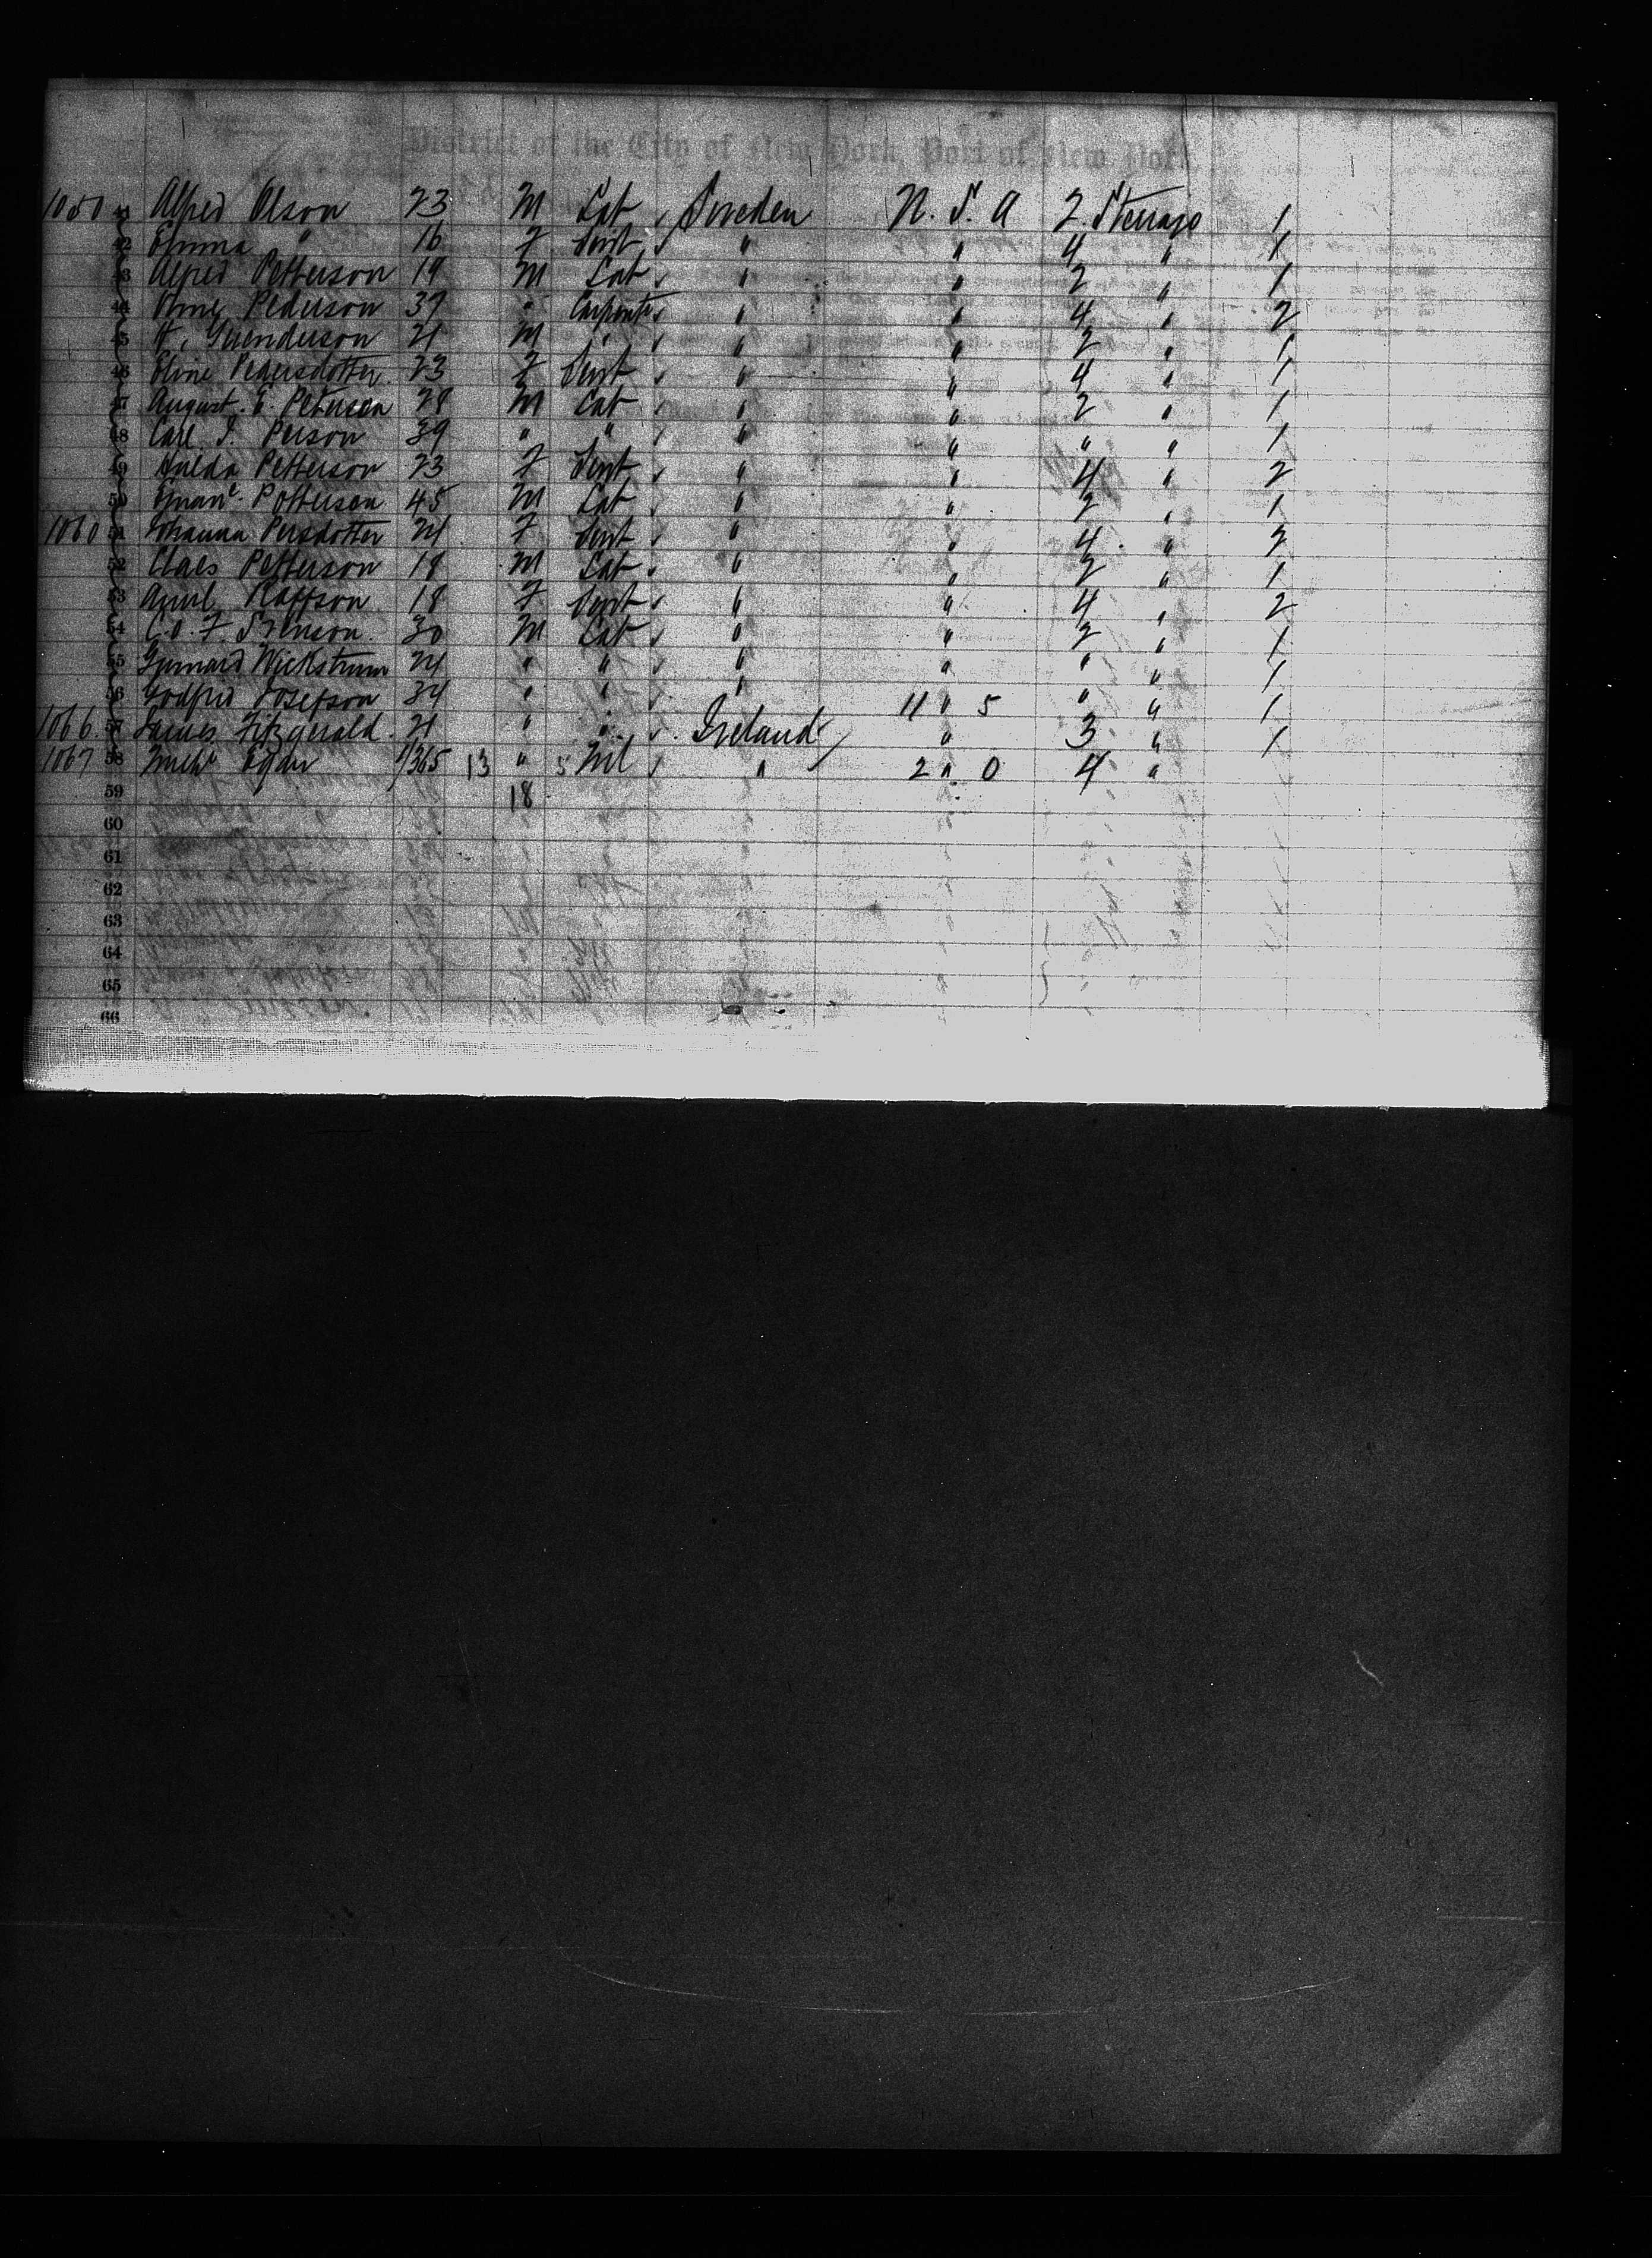 District of the City of New York, Port of New York
1050 41 Alfred Olson 23 M Lab Sweden N. S. A 2 Sterrage 1
42 Emma " 16 F Servt " " 4 " 1
43 Alfred Petterson 19 M Lab " " 2 " 1
44 Pederson 37 " Carpenter " " 4 " 2
45 Gunderson 21 M " " " 2 " 1
46 Eline Pedersdotter 23 F Servt " " 4 " 1
47 August. E. Peterson 28 M Lab " " 2 " 1
48 Carl J. Person 39 " " " " " " 1
49 Hulda Petterson 23 F Servt " " 4 " 2
50 Petterson 45 M Lab " " 2 " 1
1060 51 Johanna Persdotter 24 F Servt " " 4 " 2
52 Claes Petterson 18 M Lab " " 2 " 1
53 18 F Servt " " 4 " 2
54 C. O. F. Svenson 30 M Lab " " 2 " 1
55 Wickstrum 24 " " " " " " 1
56 Godfrid Josefson 34 " " " 11 " 5 " " 1
1066 57 James Fitzgerald 21 " " Ireland " 3 " 1
1067 58 Egan 1/365 13 " 5 Nil " 2 " 0 4 "
59 18
60
61
62
63
64
65
66